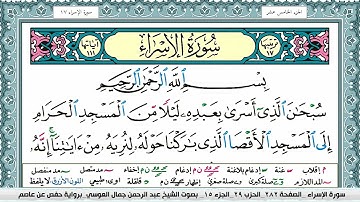 الجزء الخامس عشر
سورة الإسراء ١٧
ترتيبها ١٧
سُورَةُ الإِسْرَاءِ
آياتها ١١١
بِسْمِ اللَّهِ الرَّحْمَٰنِ الرَّحِيمِ
سُبْحَٰنَ ٱلَّذِىٓ أَسْرَىٰ بِعَبْدِهِۦ لَيْلًا مِّنَ ٱلْمَسْجِدِ ٱلْحَرَامِ
إِلَى ٱلْمَسْجِدِ ٱلْأَقْصَا ٱلَّذِى بَٰرَكْنَا حَوْلَهُۥ لِنُرِيَهُۥ مِنْ ءَايَٰتِنَآ إِنَّهُۥ
سورة الإسراء _ الصفحة ٢٨٢ _ الحزب ٢٩ _ الجزء ١٥ _ بصوت الشيخ عبد الرحمن جمال العوسي _ برواية حفص عن عاصم